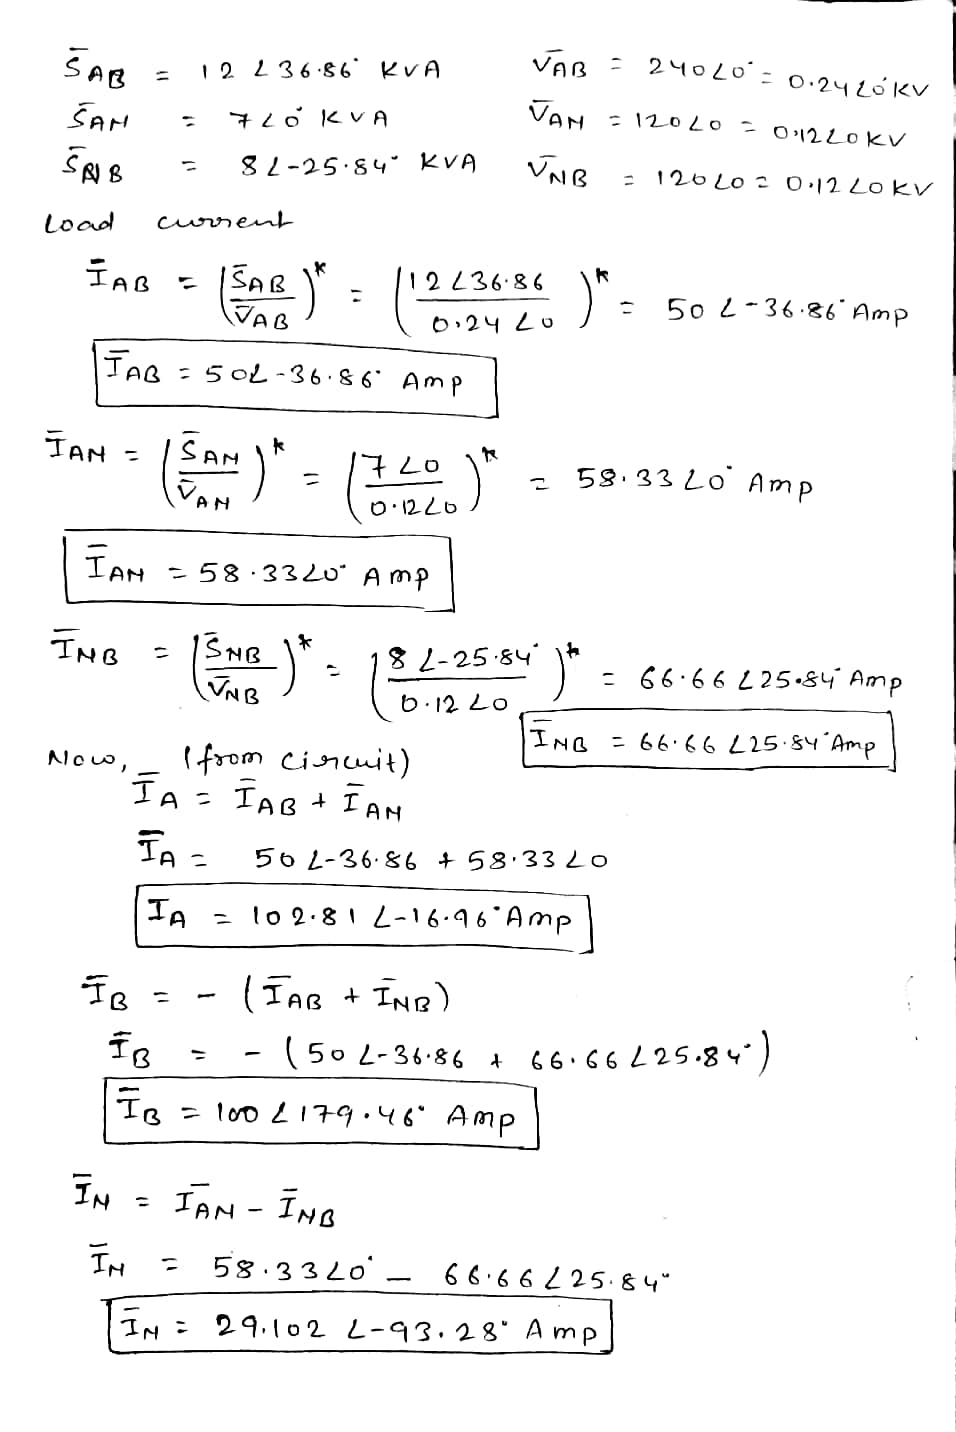 S̄AB = 12 ∠36.86° KVA V̄AB = 240∠0° = 0.24∠0° KV
S̄AN = 7∠0° KVA V̄AN = 120∠0 = 0.12∠0 KV
S̄NB = 8∠-25.84° KVA V̄NB = 120∠0 = 0.12∠0 KV
Load current
ĪAB = (S̄AB / V̄AB)* = (12∠36.86 / 0.24∠0)* = 50∠-36.86° Amp
ĪAB = 50∠-36.86° Amp
ĪAN = (S̄AN / V̄AN)* = (7∠0 / 0.12∠0)* = 58.33∠0° Amp
ĪAN = 58.33∠0° Amp
ĪNB = (S̄NB / V̄NB)* = (8∠-25.84° / 0.12∠0)* = 66.66∠25.84° Amp
ĪNB = 66.66∠25.84° Amp
Now, (from circuit)
ĪA = ĪAB + ĪAN
ĪA = 50∠-36.86 + 58.33∠0
ĪA = 102.81∠-16.96° Amp
ĪB = - (ĪAB + ĪNB)
ĪB = - (50∠-36.86 + 66.66∠25.84°)
ĪB = 100∠179.46° Amp
ĪN = ĪAN - ĪNB
ĪN = 58.33∠0° - 66.66∠25.84°
ĪN = 29.102∠-93.28° Amp